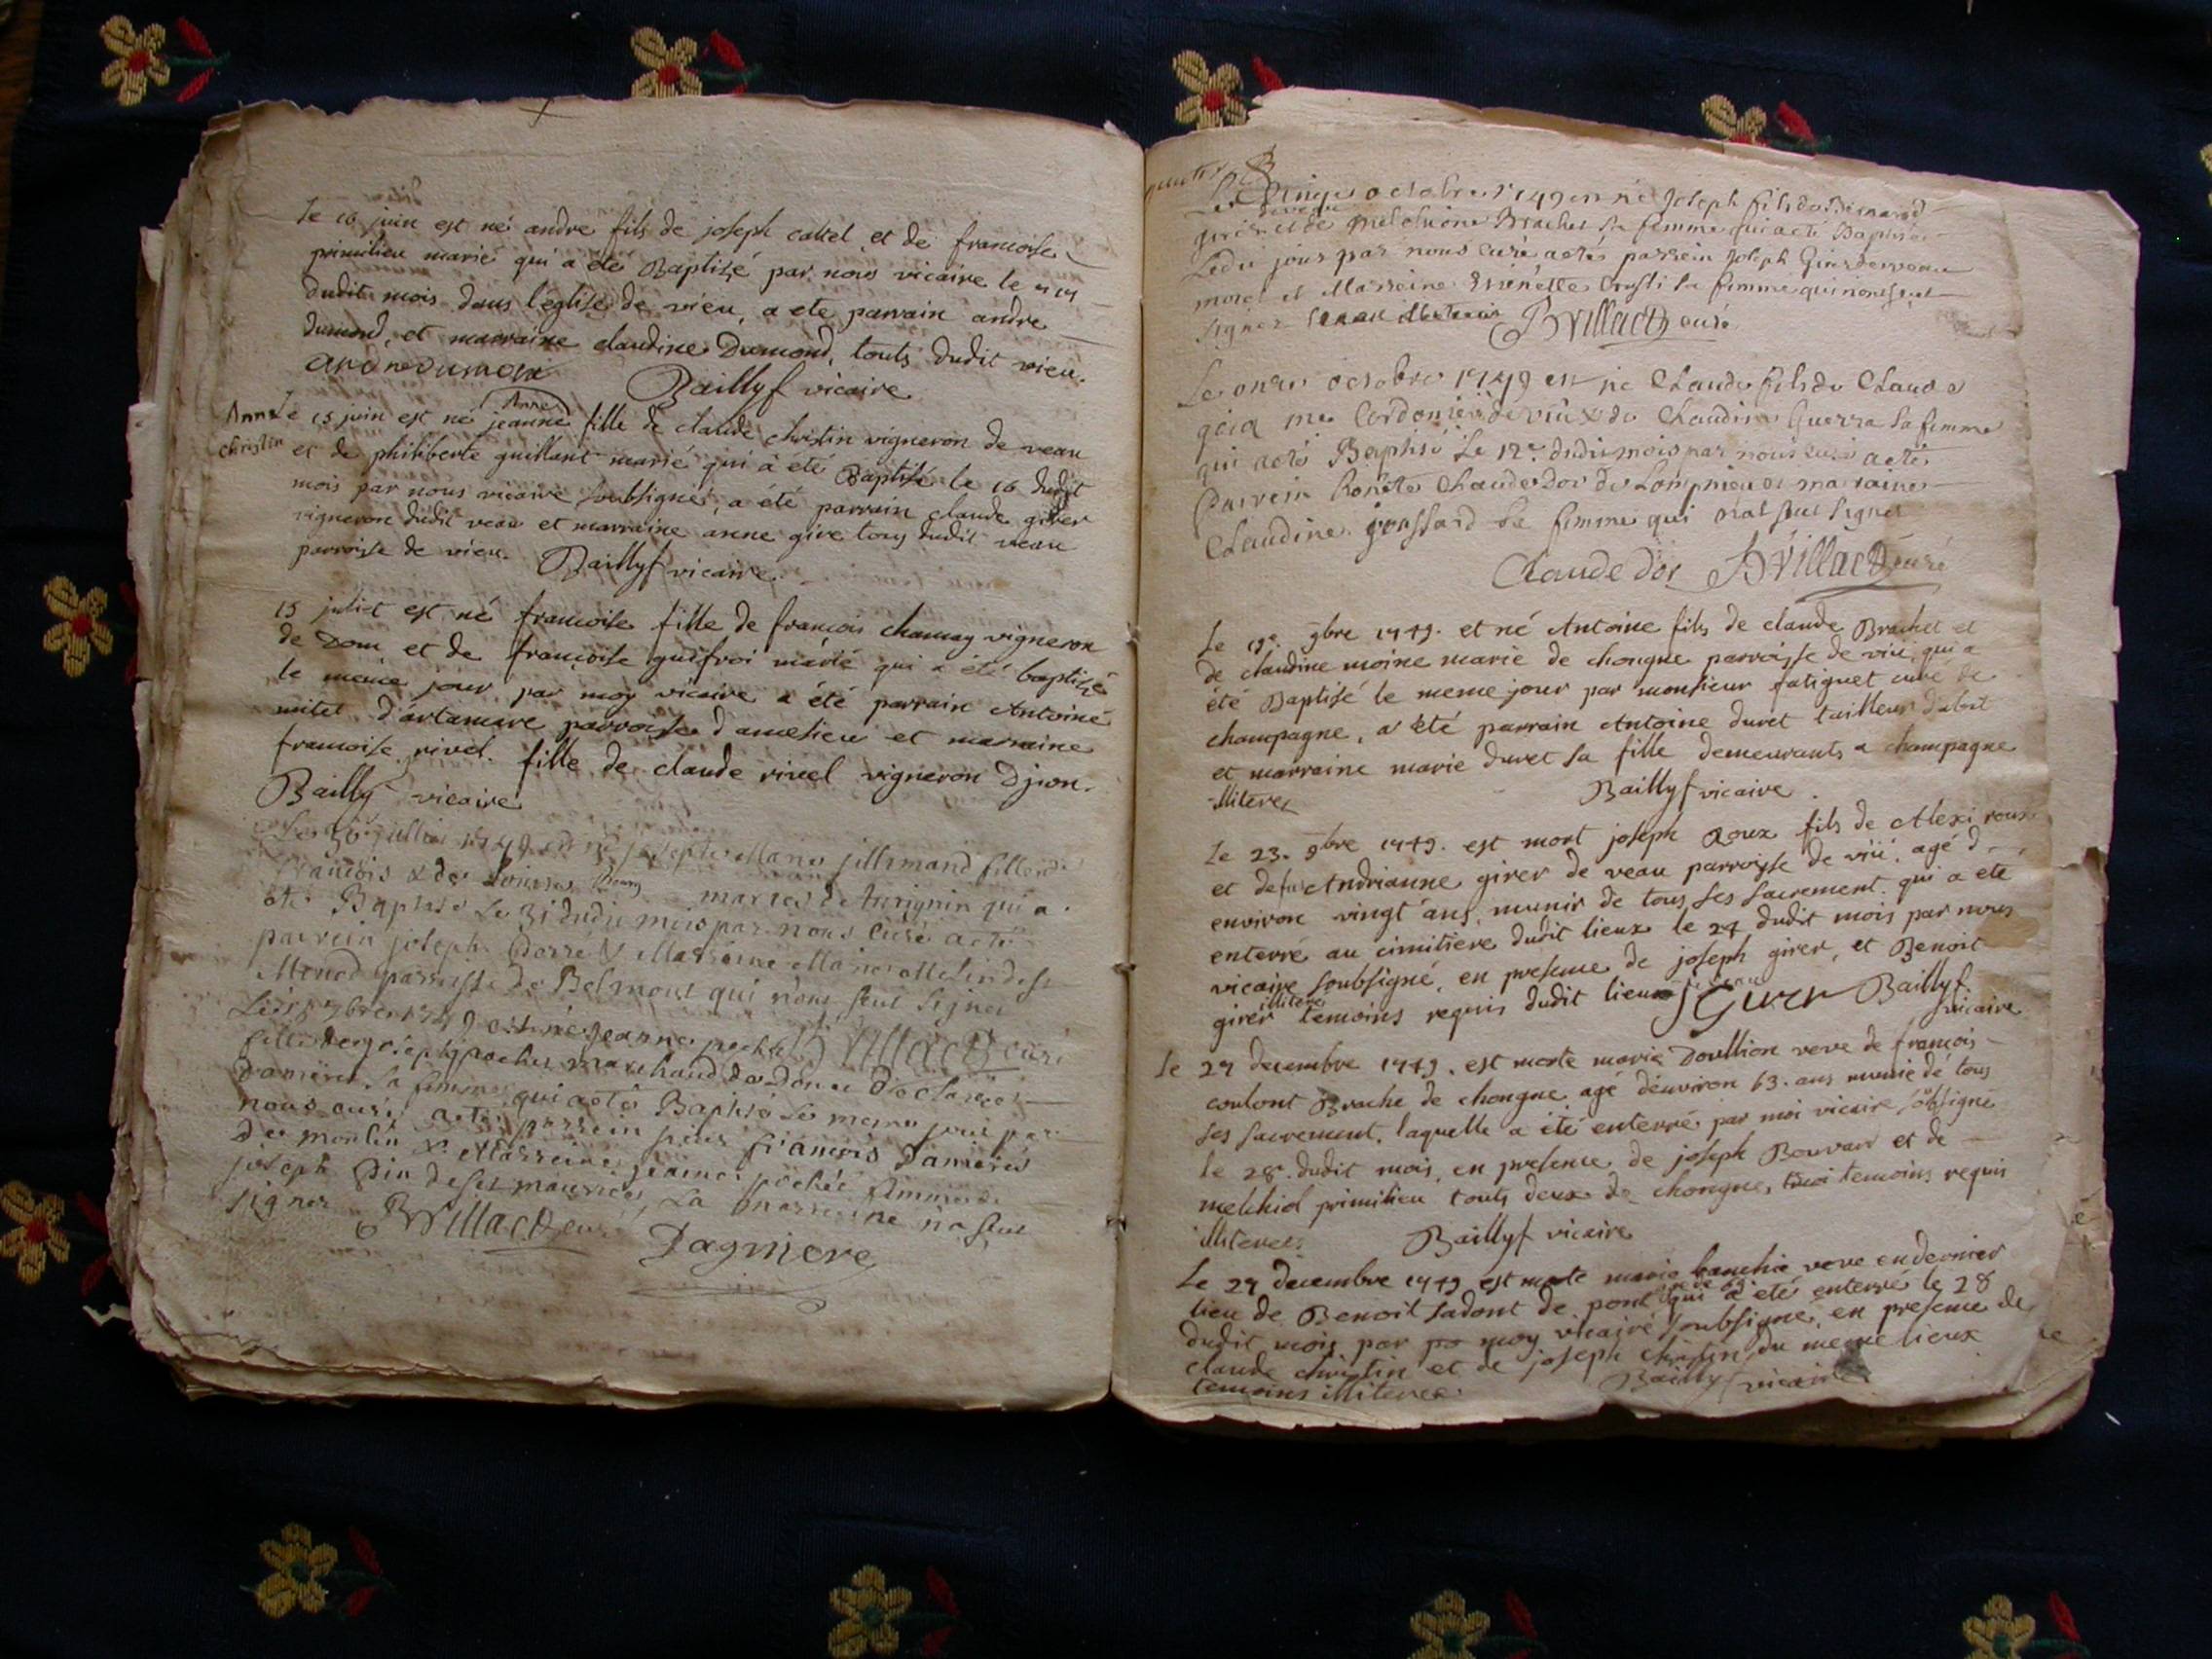 le 16 juin est né andre fils de joseph cattel et de francoise
primilieu marié qui a été Baptizé par nous vicaire le
dudit mois dans l'église de vieu, a ete parrain andre
dumond, et marraine claudine Dumond, touts dudit vieu.
andredumon Baillyf vicaire
Anne
christin
Le 15 juin est né jeanne Anne fille de claude christin vigneron de veau
et de philiberte guillant marié qui a été Baptisé le 16 dudit
mois par nous vicaire soubsigné, a été parrain claude girer
vigneron dudit veau et marraine anne give tous dudit veau
parroisse de vieu. Baillyf vicaire.
15 juliet est né francoise fille de francois chamay vigneron
de Don et de francoise guifroi marié qui a été baptizé
le meme jour par moy vicaire a été parrain Antoine
mitel d'artamare parroisse d'amelieu et marraine
francoise rivel. fille de claude rivel vigneron Djion.
Bailly vicaire
Le 30 jullier 1749 est né joseph Marie
francois & de Louise mariés de qui a
été Baptisé Le 31 dudit mois par nous curé a eté
parrein joseph & Marreine
parroisse de Belmont qui n'ont seut signer
Le 7bre 1749 est né Jeanne pochet Brillact curé
fille de joseph pochet marchand de Don & de Claudine
Damieres sa femme qui a eté Baptisé Le meme jour par
nous curé, a eté parrein sieur francois Damieres
de moulin & Marreine jeanne pochet femme de
joseph Din de st maurice, La marreine n'a seut
signer Brillact curé
Dagniere
Le octobre 1749 est né Joseph fils de Bernard
et de Melchione Brachet sa femme qui a eté Baptisé
Ledit jour par nous curé a eté parrein Joseph
morel et Marreine sa femme qui n'ont seut
signer Brillact curé
Le onze octobre 1749 est né Claude fils de Claude
goia me Cordonier de viu & de Claudine Guerra sa femme
qui a eté Baptisé Le 12e dudit mois par nous curé a eté
Parrein honete Claude Dor de Lompnieu et maraine
Claudine goussard sa femme qui n'at seut signer
Claude dor Brillact curé
Le 19e 9bre 1749. et né Antoine fils de claude Brachet et
de claudine moine marié de chongne parroisse de viu, qui a
été Baptisé le meme jour par monsieur fatiguet curé de
champagne, a été parrain Antoine duret tailleur d'abit
et marraine marie duret sa fille demeurants a champagne
illiteres Baillyf vicaire.
Le 23. 9bre 1749. est mort joseph Roux fils de Alexi roux
et de fue Andrianne girer de veau parroisse de viu, agé d
environ vingt ans, munir de tous ses sacrement. qui a eté
enterré au cimitiere dudit lieux le 24 dudit mois par nous
vicaire soubsigné, en presence de joseph girer, et Benoit
girer illitere temoins requis dudit lieux J Girer Baillyf.
vicaire
Le 27 decembre 1749. est morte marie Doullion veve de francois
coulont Brache de chongne agé d'environ 63. ans munie de tous
ses sacrement, laquelle a été enterré par moi vicaire sobsigné
le 28. dudit mois, en presence de joseph Bouvard et de
melchiol primilieu touts deux de chongne, temoins requis
illiteres. Baillyf vicaire
Le 27 decembre 1749 est morte marie banchie veve en dernier
lieu de Benoit sadont de pont qui a eté enterré le 28
dudit mois par moy vicaire soubsigné, en presence de
claude christin et de joseph christin du meme lieux
temoins illiteres Baillyf vicaire